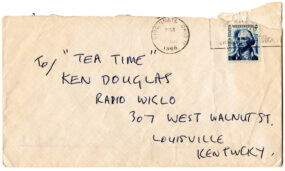 1966
To/ "TEA TIME"
KEN DOUGLAS
RADIO WKLO
307 WEST WALNUT ST.
LOUISVILLE
KENTUCKY.